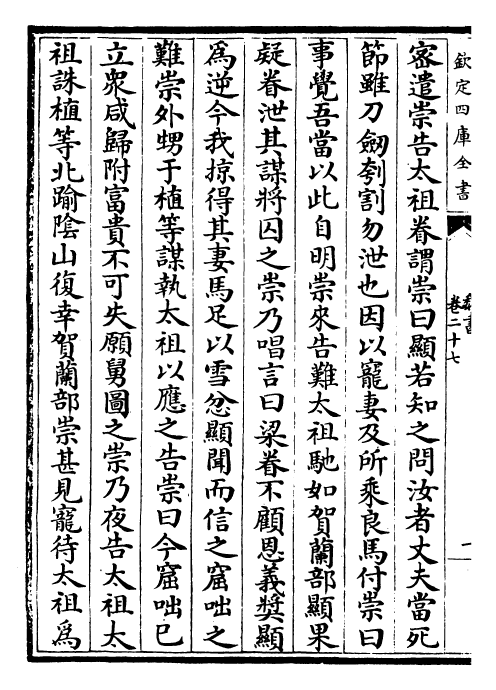 欽定四庫全書
魏書
卷二十七
一
密遣崇告太祖眷謂崇曰顯若知之問汝者丈夫當死
節雖刀劒刳割勿泄也因以寵妻及所乘良馬付崇曰
事覺吾當以此自明崇來告難太祖馳如賀蘭部顯果
疑眷泄其謀將囚之崇乃唱言曰梁眷不顧恩義奬顯
為逆今我掠得其妻馬足以雪忿顯聞而信之窟咄之
難崇外甥于植等謀執太祖以應之告崇曰今窟咄已
立衆咸歸附富貴不可失願舅圖之崇乃夜告太祖太
祖誅植等北踰隂山復幸賀蘭部崇甚見寵待太祖為